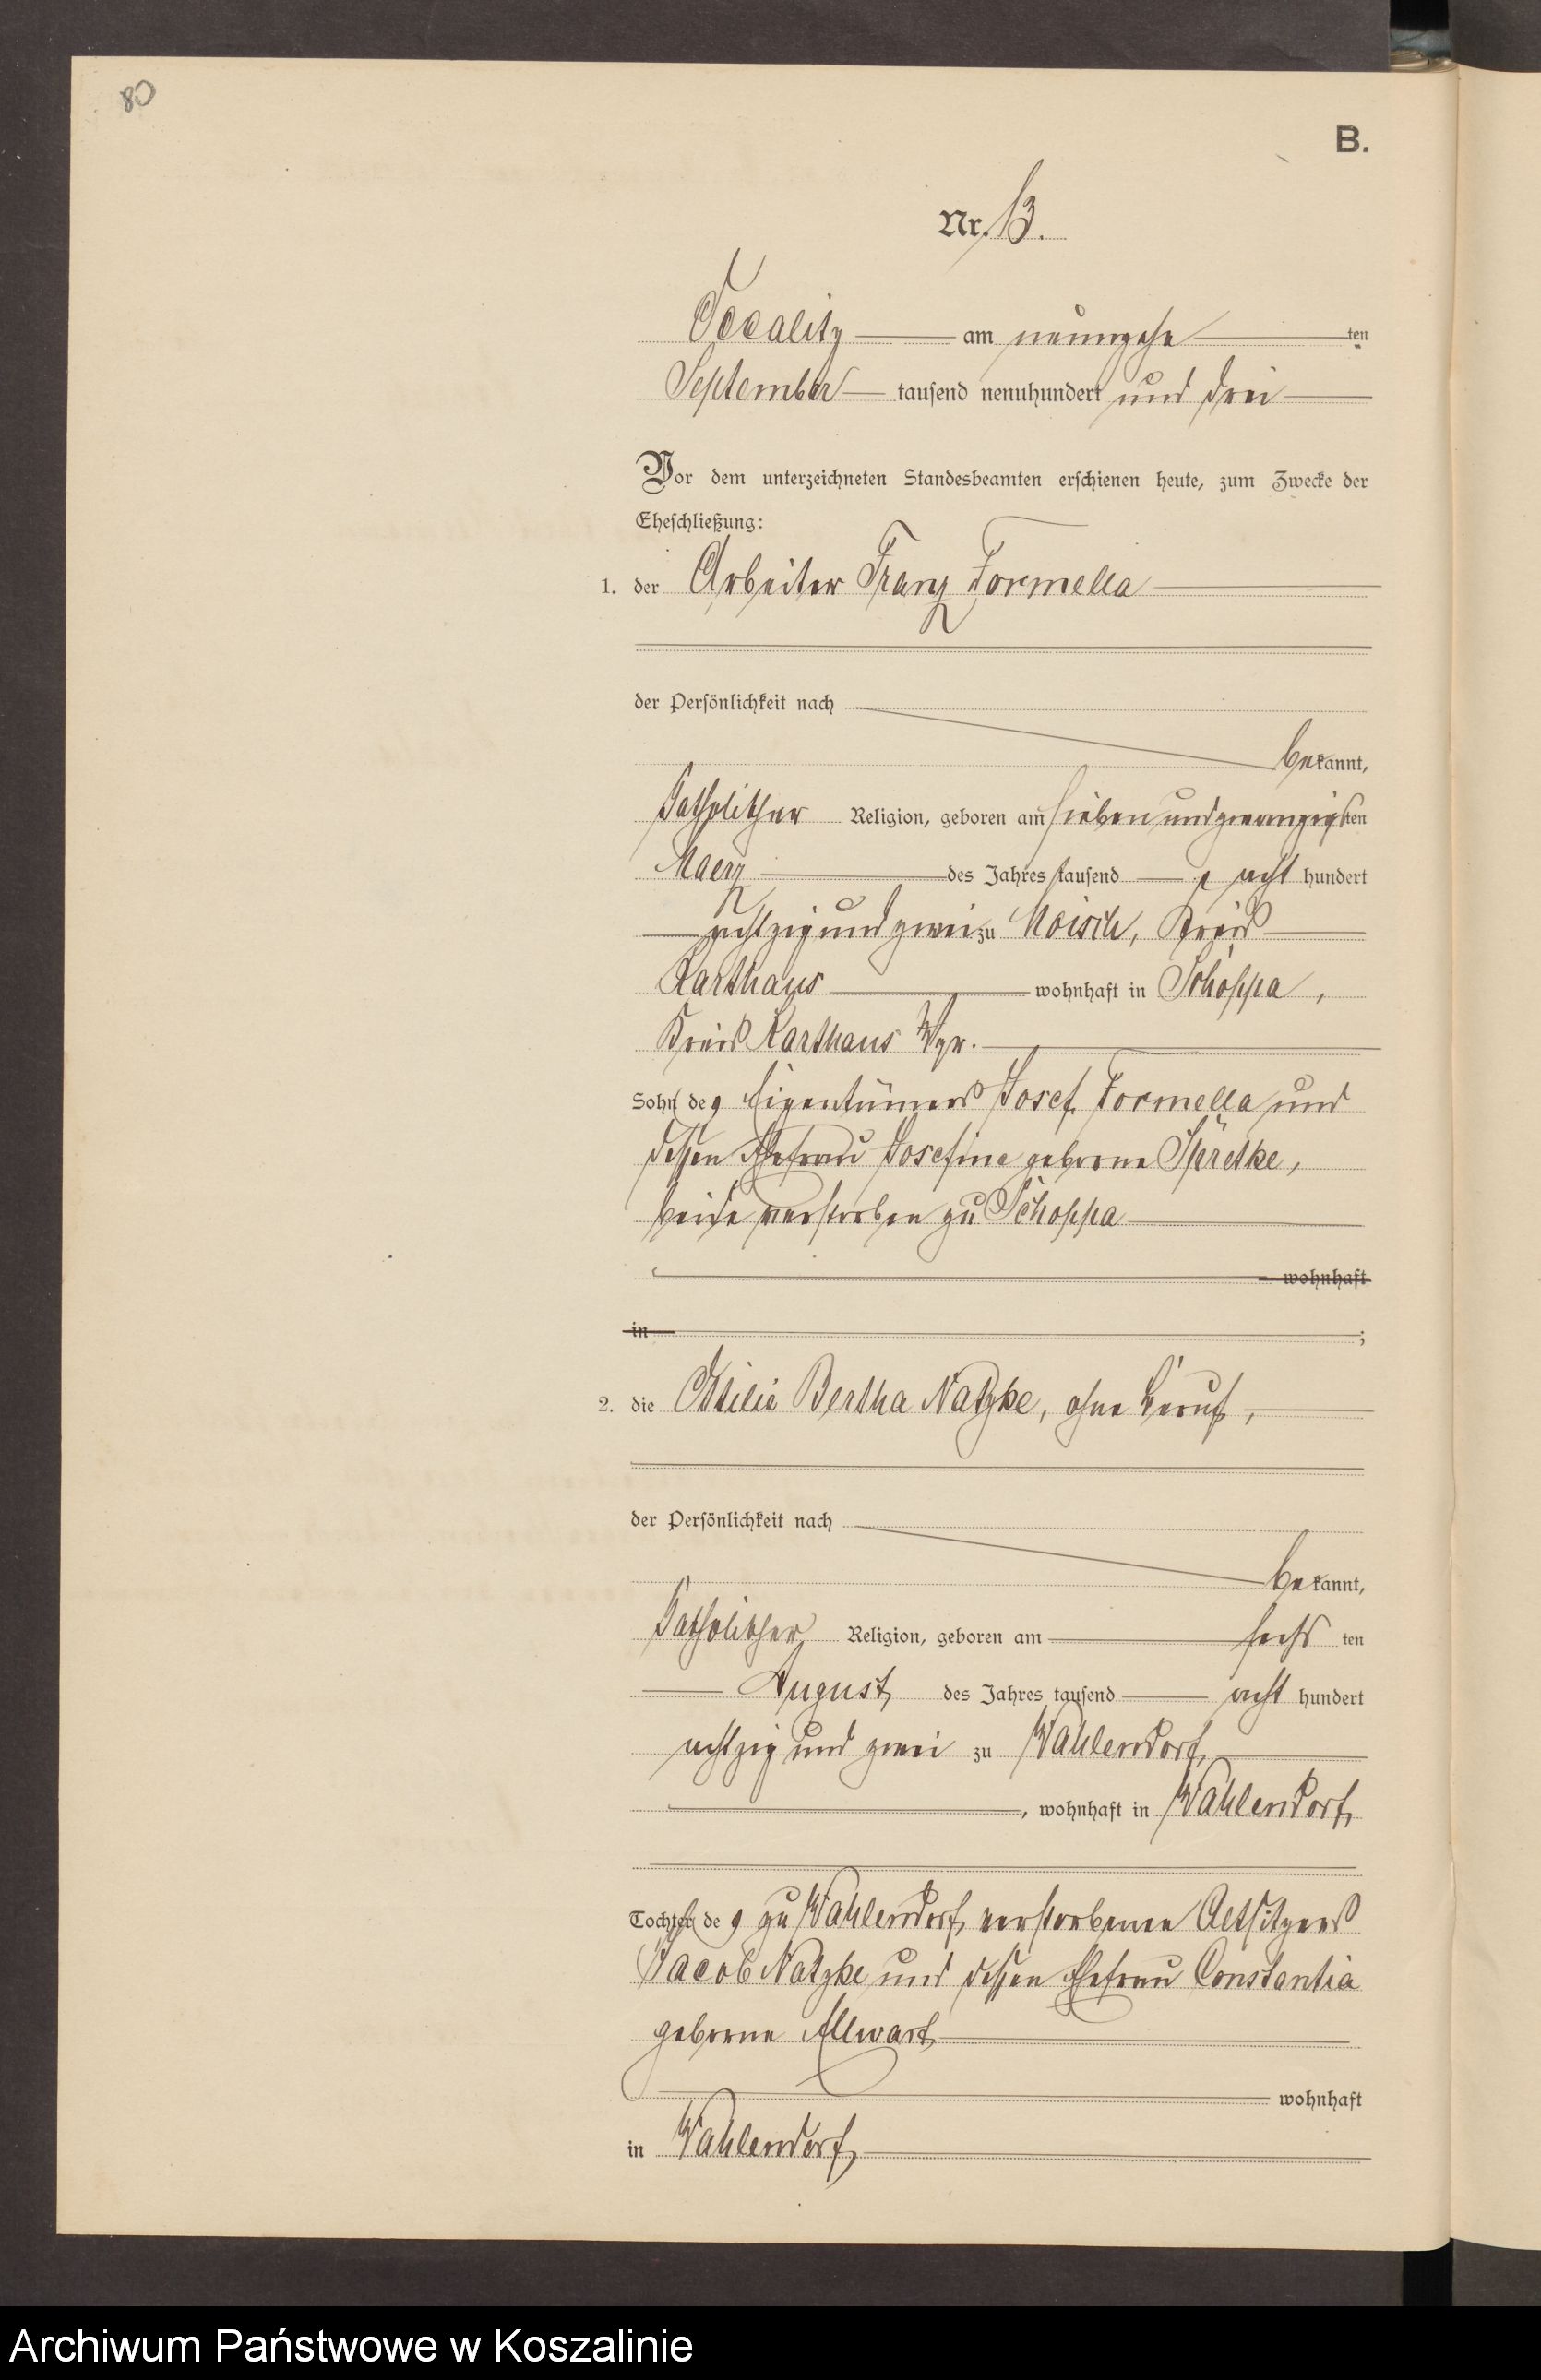 80
B.
Nr. 13.
am neunzehnten
September tausend neunhundert und drei
Vor dem unterzeichneten Standesbeamten erschienen heute, zum Zwecke der
Eheschließung:
1. der Arbeiter Franz Formella
der Persönlichkeit nach
bekannt,
katholischer Religion, geboren am sieben und zwanzigsten
Maerz des Jahres tausend acht hundert
achtzig und zwei zu Moisch, Kreis
Karthaus wohnhaft in Schoppa,
Kreis Karthaus Wpr.
Sohn des Eigentümers Josef Formella und
dessen Ehefrau Josefine geborne
beide verstorben zu Schoppa
wohnhaft
in ;
2. die Ottilie Bertha Natzke, ohne Beruf,
der Persönlichkeit nach
bekannt,
katholischer Religion, geboren am sechs ten
August des Jahres tausend acht hundert
achtzig und zwei zu Wahlendorf,
, wohnhaft in Wahlendorf,
Tochter des zu Wahlendorf verstorbenen Altsitzers
Jacob Natzke und dessen Ehefrau Constantia
geborne Ellwart
wohnhaft
in Wahlendorf,
Archiwum Państwowe w Koszalinie